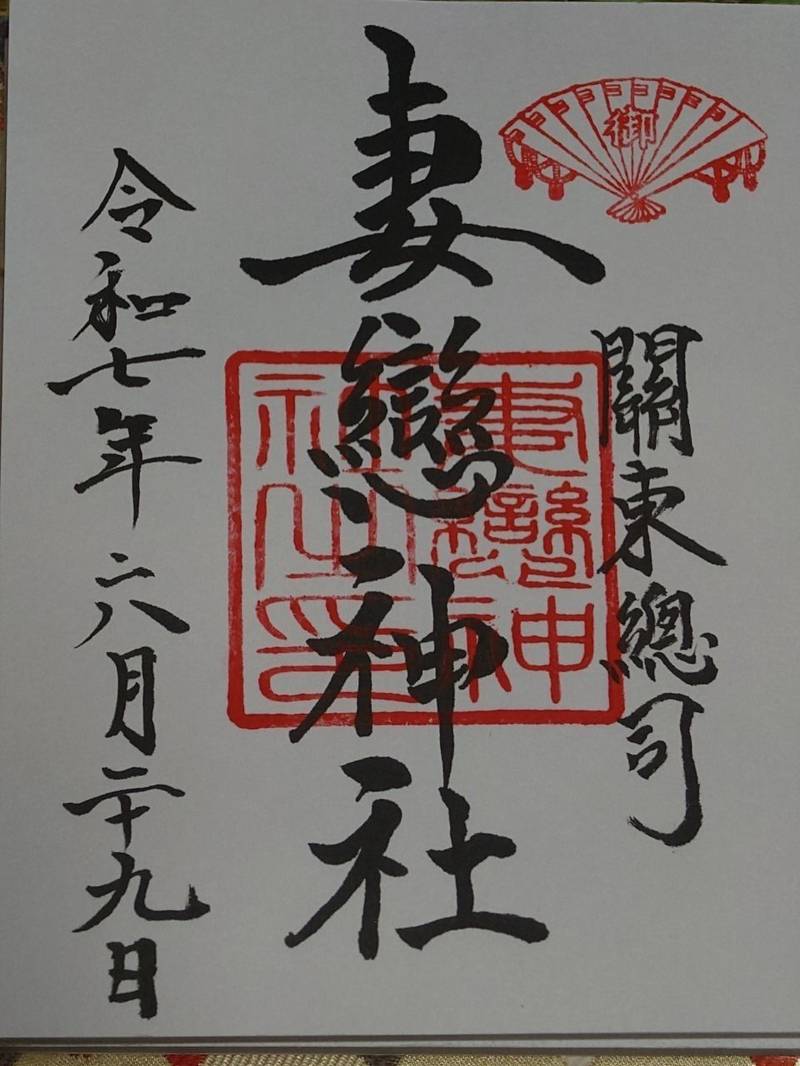 御
關東總司
妻戀神社
妻戀神社之印
令和七年六月二十九日